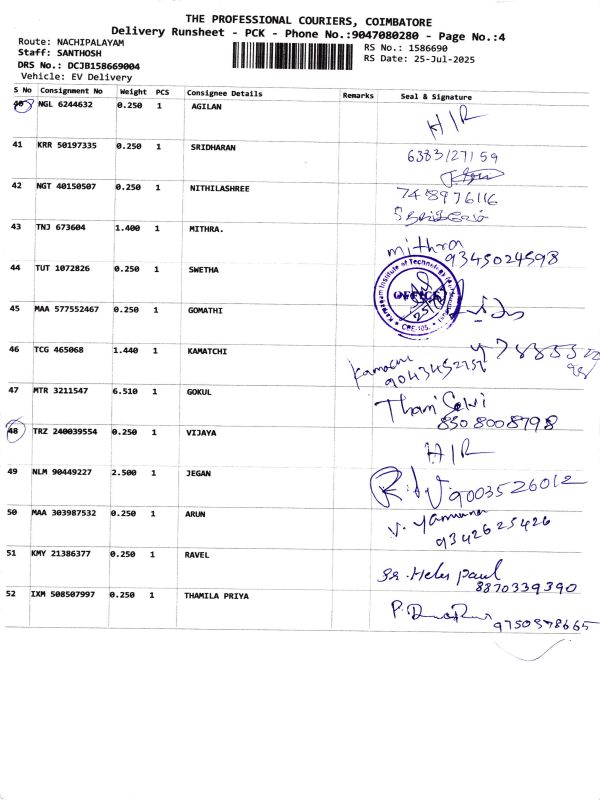 THE PROFESSIONAL COURIERS, COIMBATORE
Delivery Runsheet - PCK - Phone No.:9047080280 - Page No.:4
Route: NACHIPALAYAM
RS No.: 1586690
Staff: SANTHOSH
RS Date: 25-Jul-2025
DRS No.: DCJB158669004
Vehicle: EV Delivery
S No Consignment No Weight PCS Consignee Details Remarks Seal & Signature
40 NGL 6244632 0.250 1 AGILAN H/R
41 KRR 50197335 0.250 1 SRIDHARAN 6383127159
42 NGT 40150507 0.250 1 NITHILASHREE 7418976116
43 TNJ 673604 1.400 1 MITHRA. mithra 9345024598
44 TUT 1072826 0.250 1 SWETHA Institute of Technology OFFICE
45 MAA 577552467 0.250 1 GOMATHI
46 TCG 465068 1.440 1 KAMATCHI Kamachi
47 MTR 3211547 6.510 1 GOKUL Thani Selvi 8508008798
48 TRZ 240039554 0.250 1 VIJAYA H/R
49 NLM 90449227 2.500 1 JEGAN 9003526012
50 MAA 303987532 0.250 1 ARUN V. Yamuna 9342625426
51 KMY 21386377 0.250 1 RAVEL Paul 8870339390
52 IXM 508507997 0.250 1 THAMILA PRIYA 9750578665